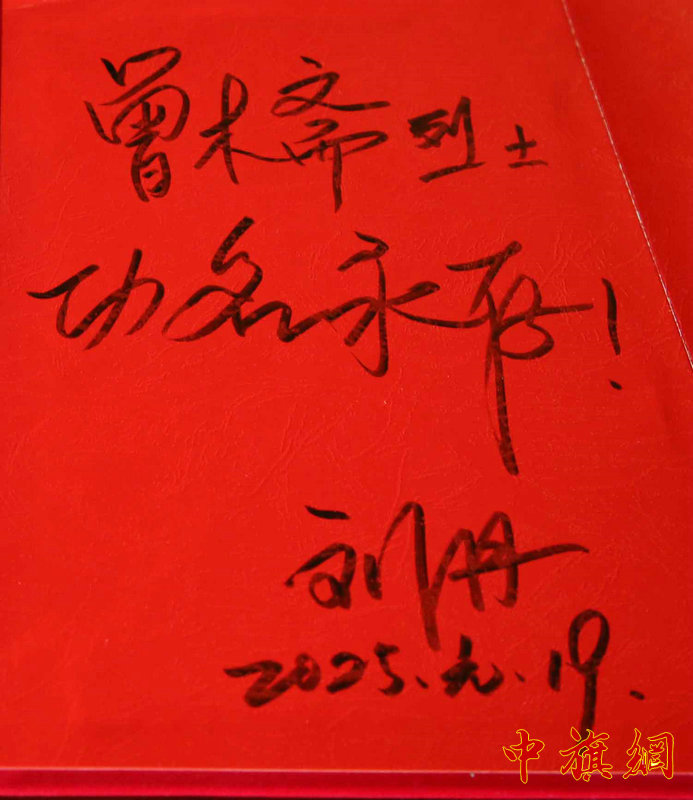 曾木斋烈士
功名永存！
刘丹
2025.元.19.
中旗網